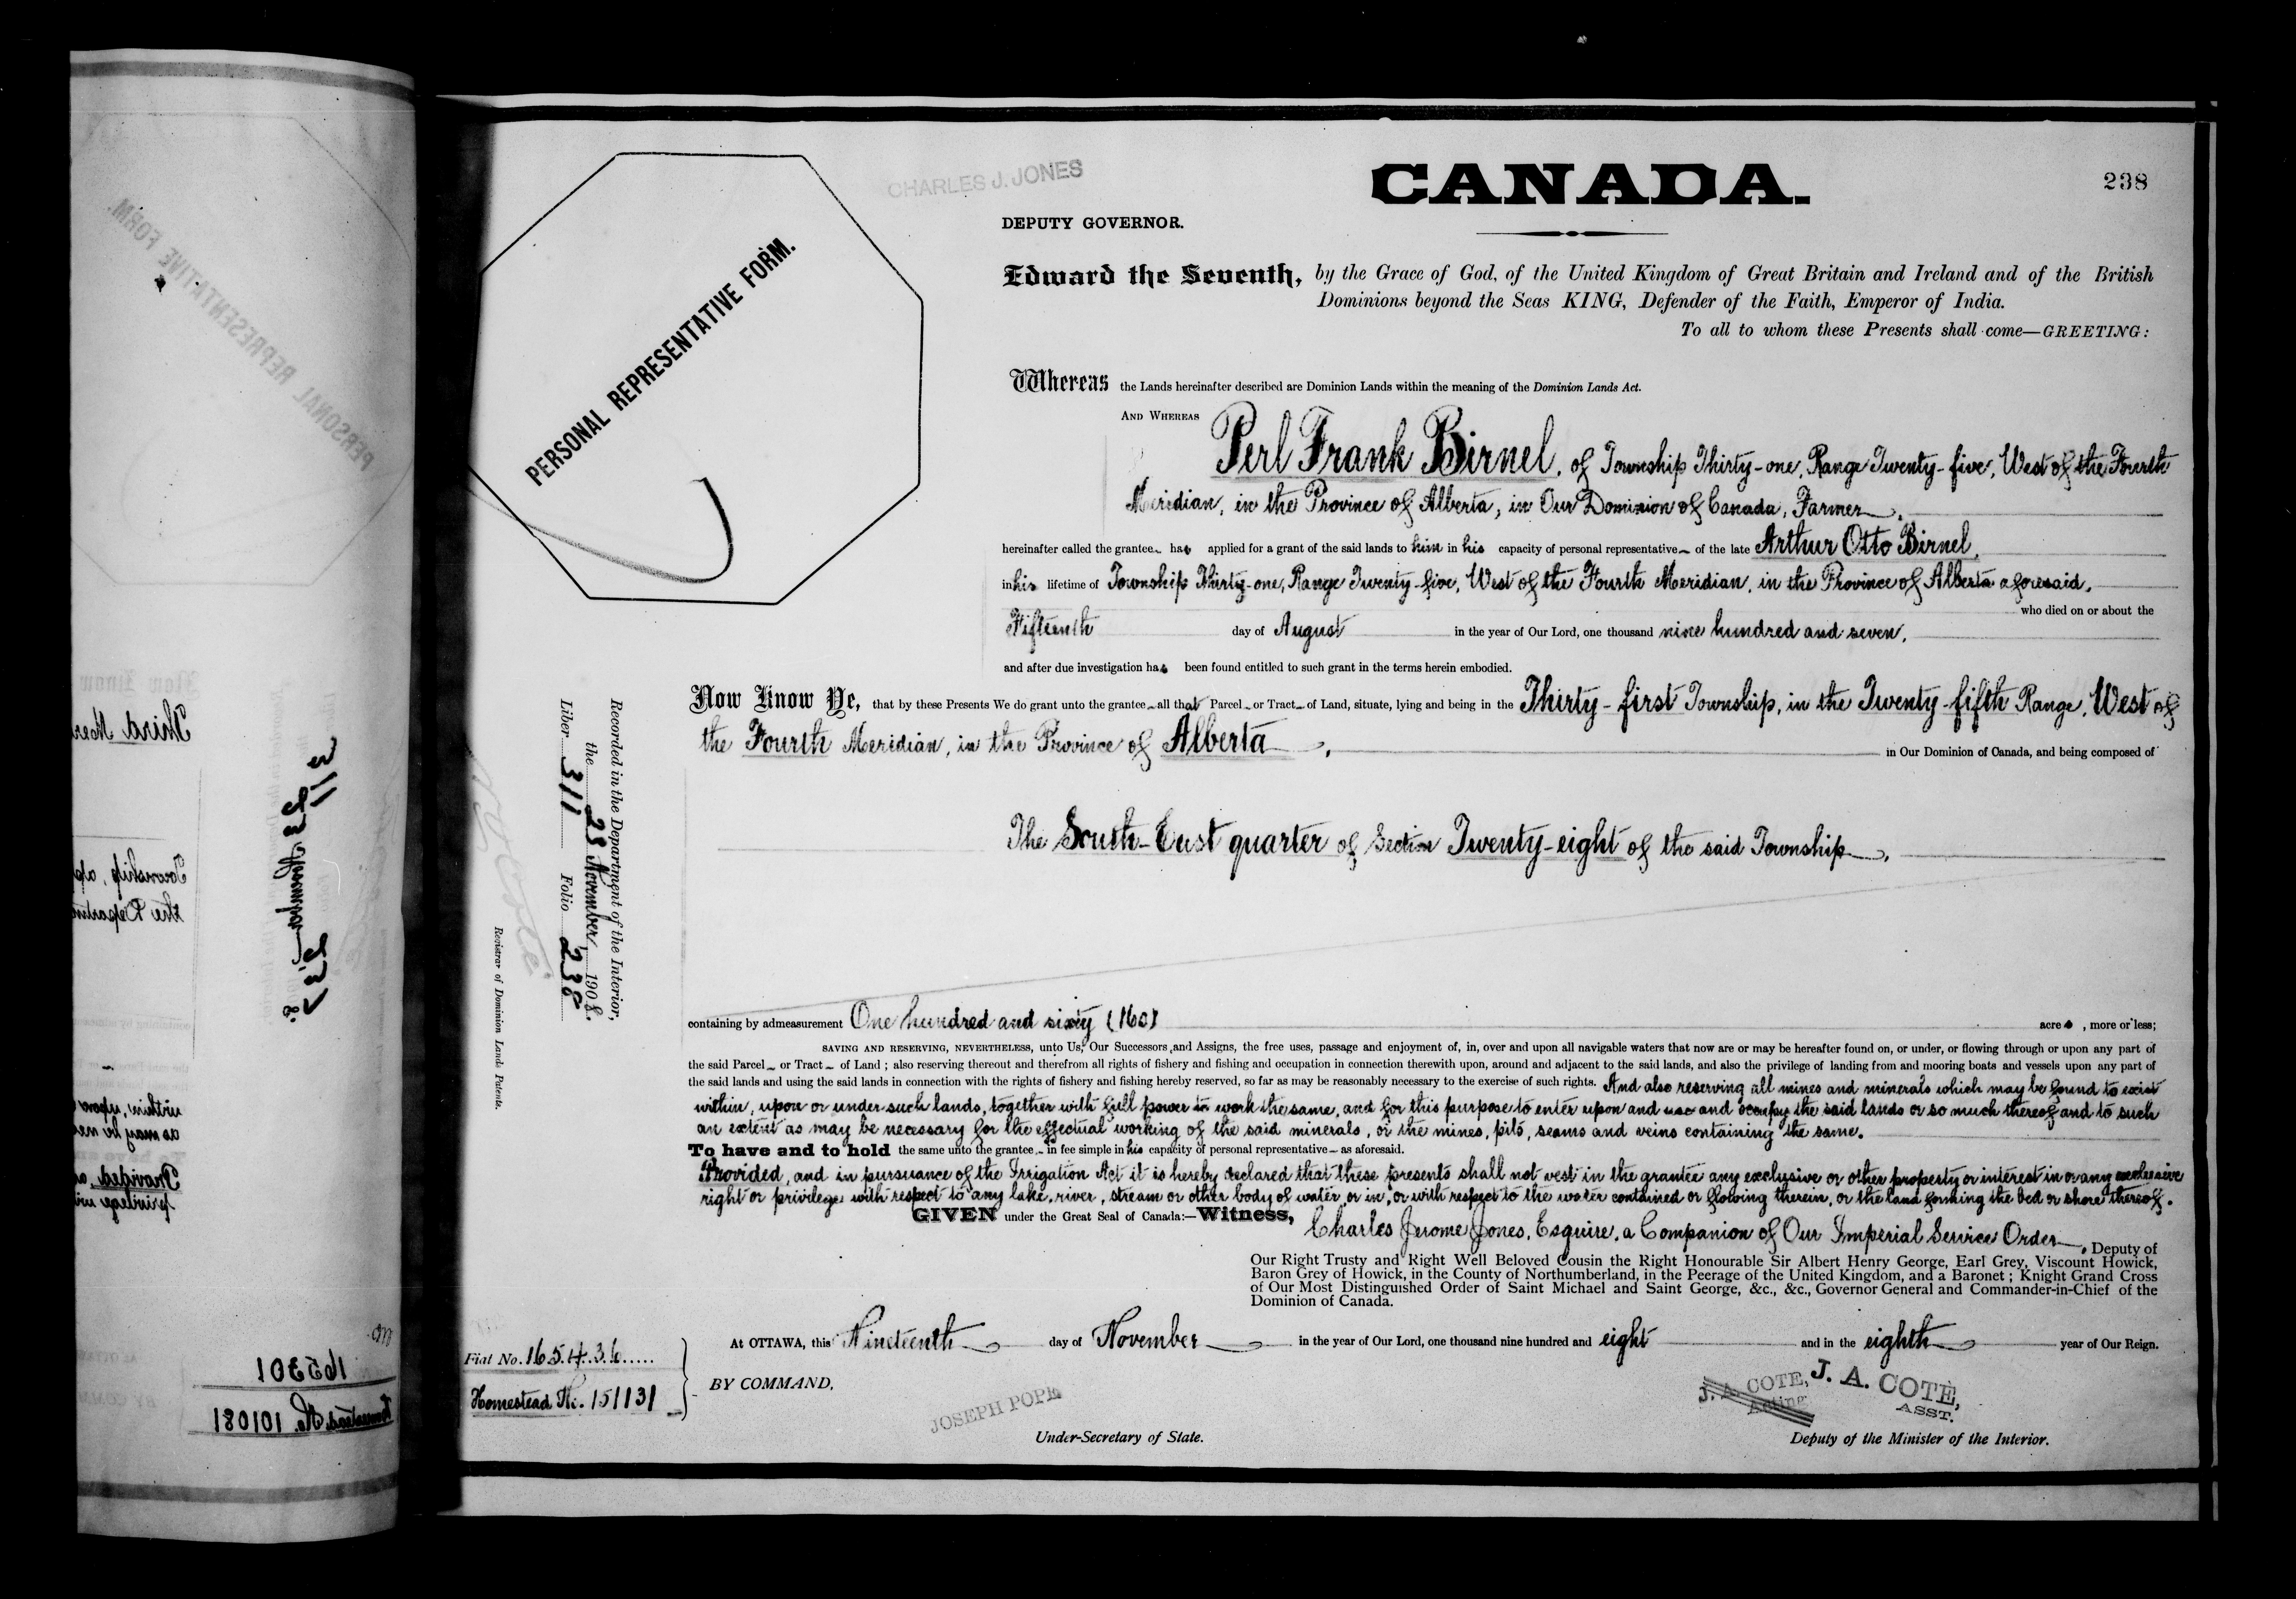 CHARLES J. JONES
CANADA.
238
DEPUTY GOVERNOR.
PERSONAL REPRESENTATIVE FORM.
Edward the Seventh, by the Grace of God, of the United Kingdom of Great Britain and Ireland and of the British
Dominions beyond the Seas KING, Defender of the Faith, Emperor of India.
To all to whom these Presents shall come—GREETING:
Whereas the Lands hereinafter described are Dominion Lands within the meaning of the Dominion Lands Act.
AND WHEREAS
Perl Frank Birnel, of Township Thirty-one, Range Twenty-five, West of the Fourth
Meridian, in the Province of Alberta, in Our Dominion of Canada, Farmer,
hereinafter called the grantee has applied for a grant of the said lands to him in his capacity of personal representative of the late Arthur Otto Birnel,
in his lifetime of Township Thirty-one, Range Twenty-five, West of the Fourth Meridian, in the Province of Alberta aforesaid,
who died on or about the
Fifteenth day of August in the year of Our Lord, one thousand nine hundred and seven,
and after due investigation has been found entitled to such grant in the terms herein embodied.
Now Know Ye, that by these Presents We do grant unto the grantee all that Parcel or Tract of Land, situate, lying and being in the Thirty-first Township, in the Twenty-fifth Range, West of
the Fourth Meridian, in the Province of Alberta, in Our Dominion of Canada, and being composed of
The South-East quarter of Section Twenty-eight of the said Township.
Recorded in the Department of the Interior,
the 23 November, 1908.
Liber 311 Folio 238
Registrar of Dominion Lands Patents.
containing by admeasurement One hundred and sixty (160) acres, more or less;
SAVING AND RESERVING, NEVERTHELESS, unto Us, Our Successors and Assigns, the free uses, passage and enjoyment of, in, over and upon all navigable waters that now are or may be hereafter found on, or under, or flowing through or upon any part of
the said Parcel or Tract of Land; also reserving thereout and therefrom all rights of fishery and fishing and occupation in connection therewith upon, around and adjacent to the said lands, and also the privilege of landing from and mooring boats and vessels upon any part of
the said lands and using the said lands in connection with the rights of fishery and fishing hereby reserved, so far as may be reasonably necessary to the exercise of such rights. And also reserving all mines and minerals which may be found to exist
within, upon or under such lands, together with full power to work the same, and for this purpose to enter upon and use and occupy the said lands or so much thereof and to such
an extent as may be necessary for the effectual working of the said minerals, or the mines, pits, seams and veins containing the same.
To have and to hold the same unto the grantee in fee simple in his capacity of personal representative as aforesaid.
Provided, and in pursuance of the Irrigation Act it is hereby declared that these presents shall not vest in the grantee any exclusive or other property or interest in or any exclusive
right or privilege with respect to any lake, river, stream or other body of water, or in, or with respect to the water contained or flowing therein, or the land forming the bed or shore thereof.
GIVEN under the Great Seal of Canada:—Witness, Charles Jerome Jones, Esquire, a Companion of Our Imperial Service Order, Deputy of
Our Right Trusty and Right Well Beloved Cousin the Right Honourable Sir Albert Henry George, Earl Grey, Viscount Howick,
Baron Grey of Howick, in the County of Northumberland, in the Peerage of the United Kingdom, and a Baronet; Knight Grand Cross
of Our Most Distinguished Order of Saint Michael and Saint George, &c., &c., Governor General and Commander-in-Chief of the
Dominion of Canada.
At OTTAWA, this Nineteenth day of November in the year of Our Lord, one thousand nine hundred and eight and in the eighth year of Our Reign.
Fiat No. 165436
Homestead No. 151131
BY COMMAND,
JOSEPH POPE
Under-Secretary of State.
J. A. COTE,
Acting
J. A. COTE,
ASST.
Deputy of the Minister of the Interior.
PERSONAL REPRESENTATIVE FORM.
Third Mer
Township, ap
the Departm
311
23 November
237
8.
within, upon
as may be ne
Provided, a
privilege wi
165301
Homestead No. 180101